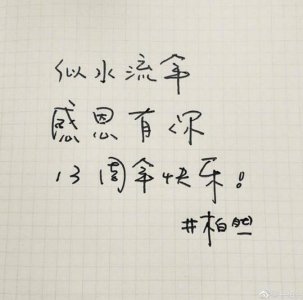 似水流年
感恩有你
13周年快乐！
#柏胆